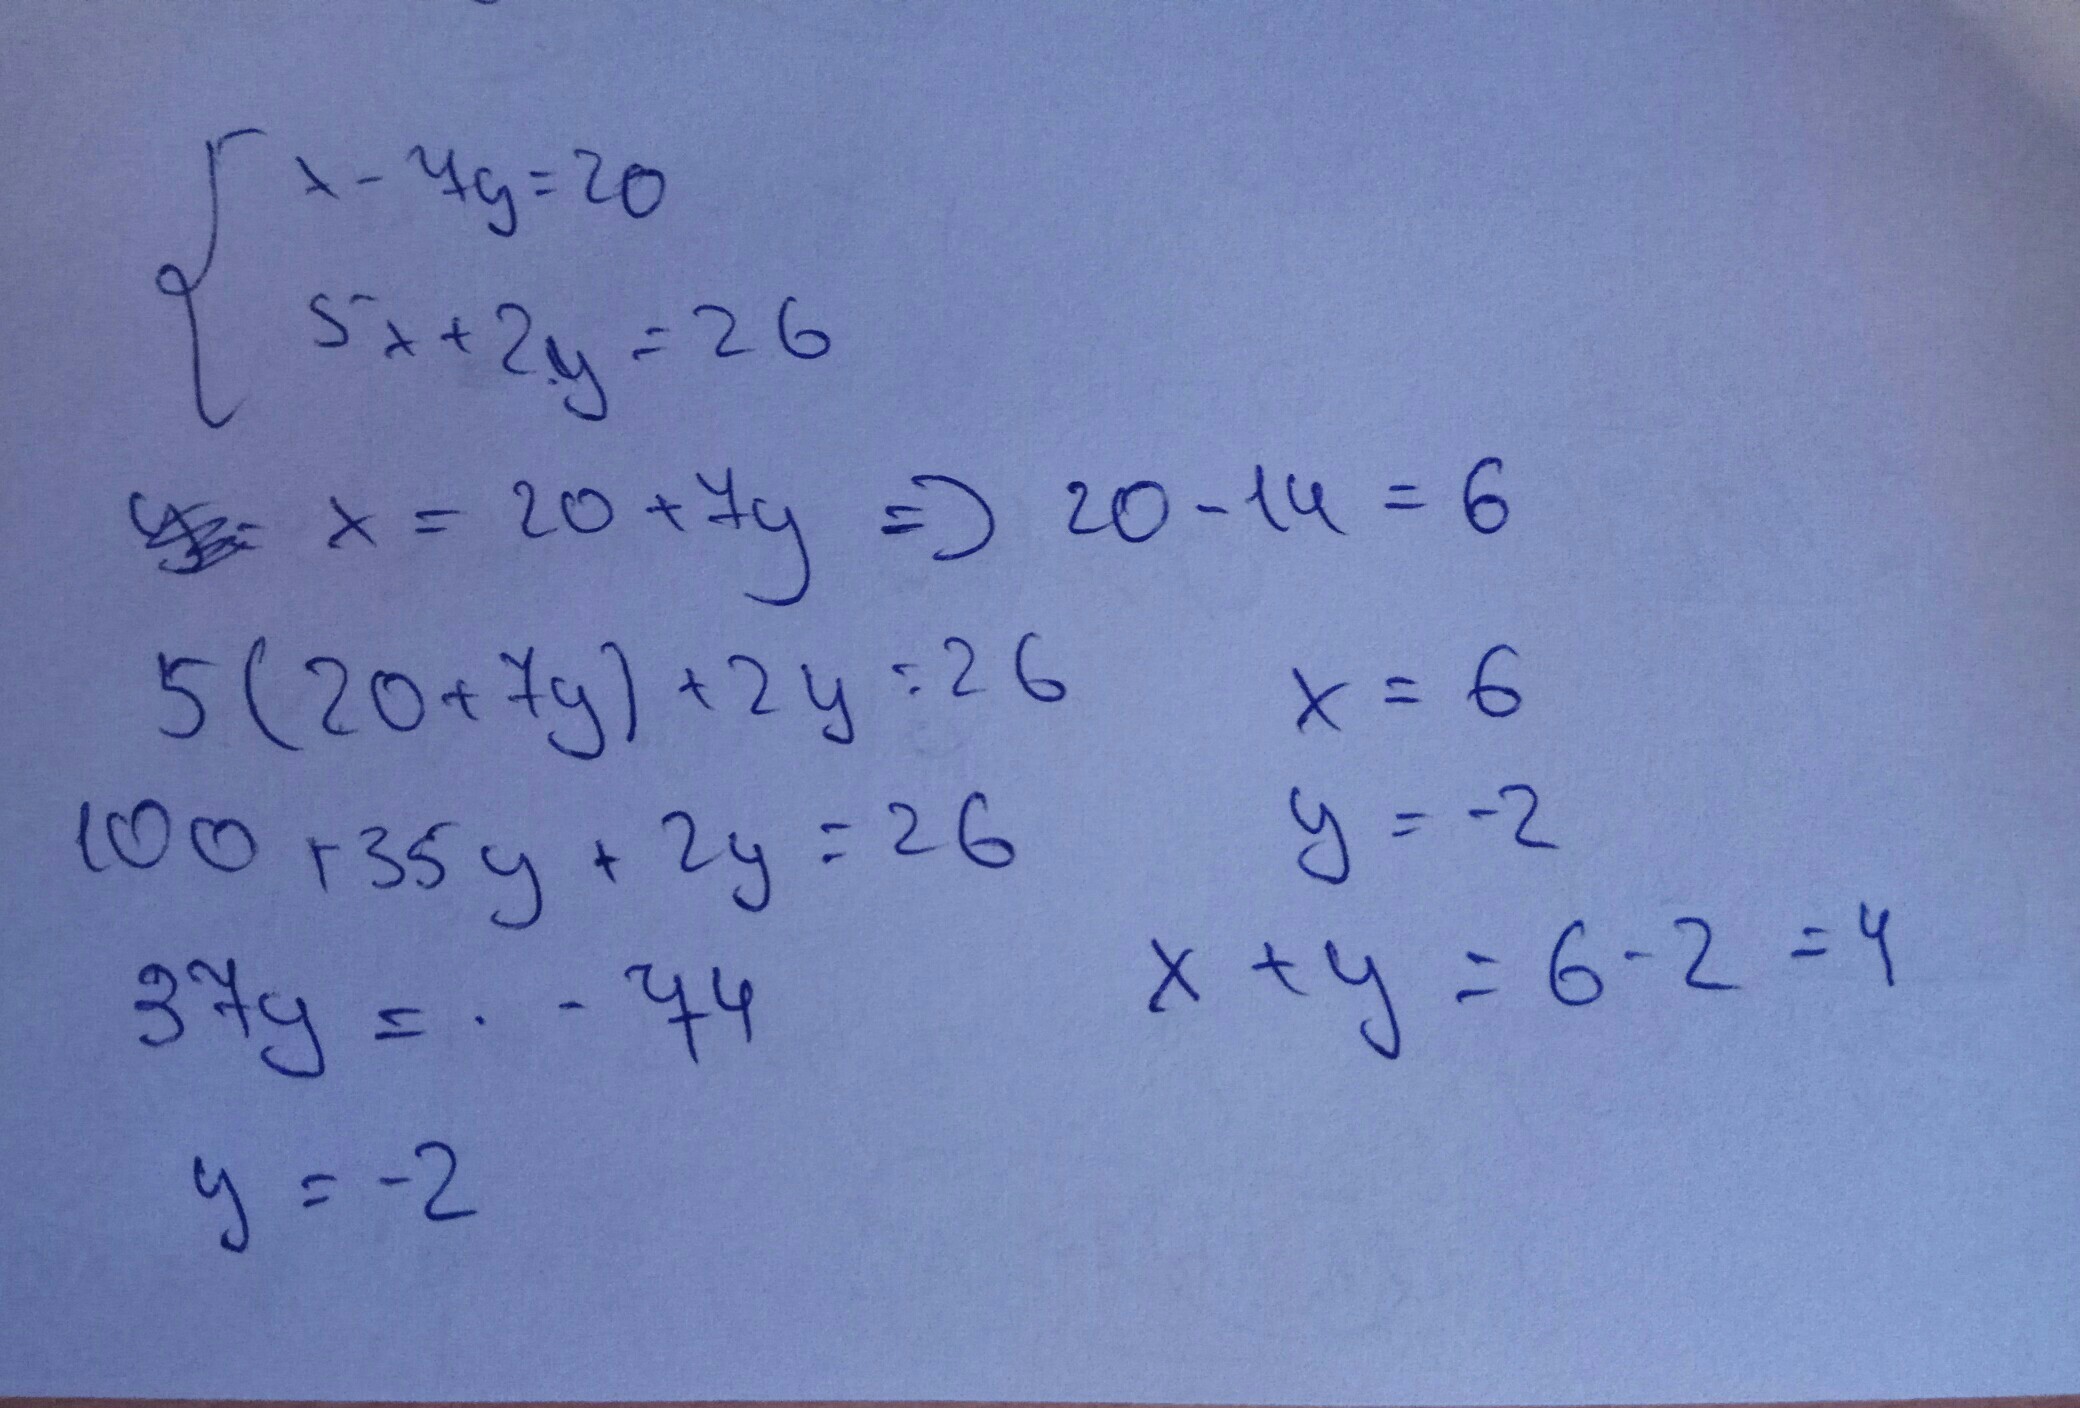 x - 7y = 20
5x + 2y = 26
x = 20 + 7y => 20 - 14 = 6
5(20 + 7y) + 2y = 26
x = 6
100 + 35y + 2y = 26
y = -2
37y = . - 74
x + y = 6 - 2 = 4
y = -2